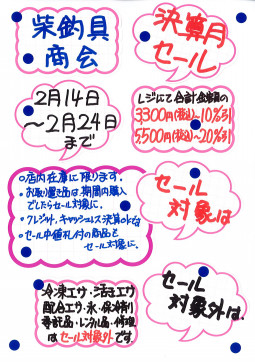 柴釣具
商会
決算月
セール
2月14日
～2月24日
まで
レジにて合計金額の
3,300円(税込)～10%引
5,500円(税込)～20%引
○店内在庫に限ります。
○お取り置き品は期間内購入
でしたらセール対象に。
○クレジット、キャッシュレス決算OKです
○セール中値札付の商品も
セール対象に。
セール
対象は
冷凍エサ・活きエサ
配合エサ・氷・保冷剤
委託品・レンタル品・修理
はセール対象外です。
セール
対象外は、